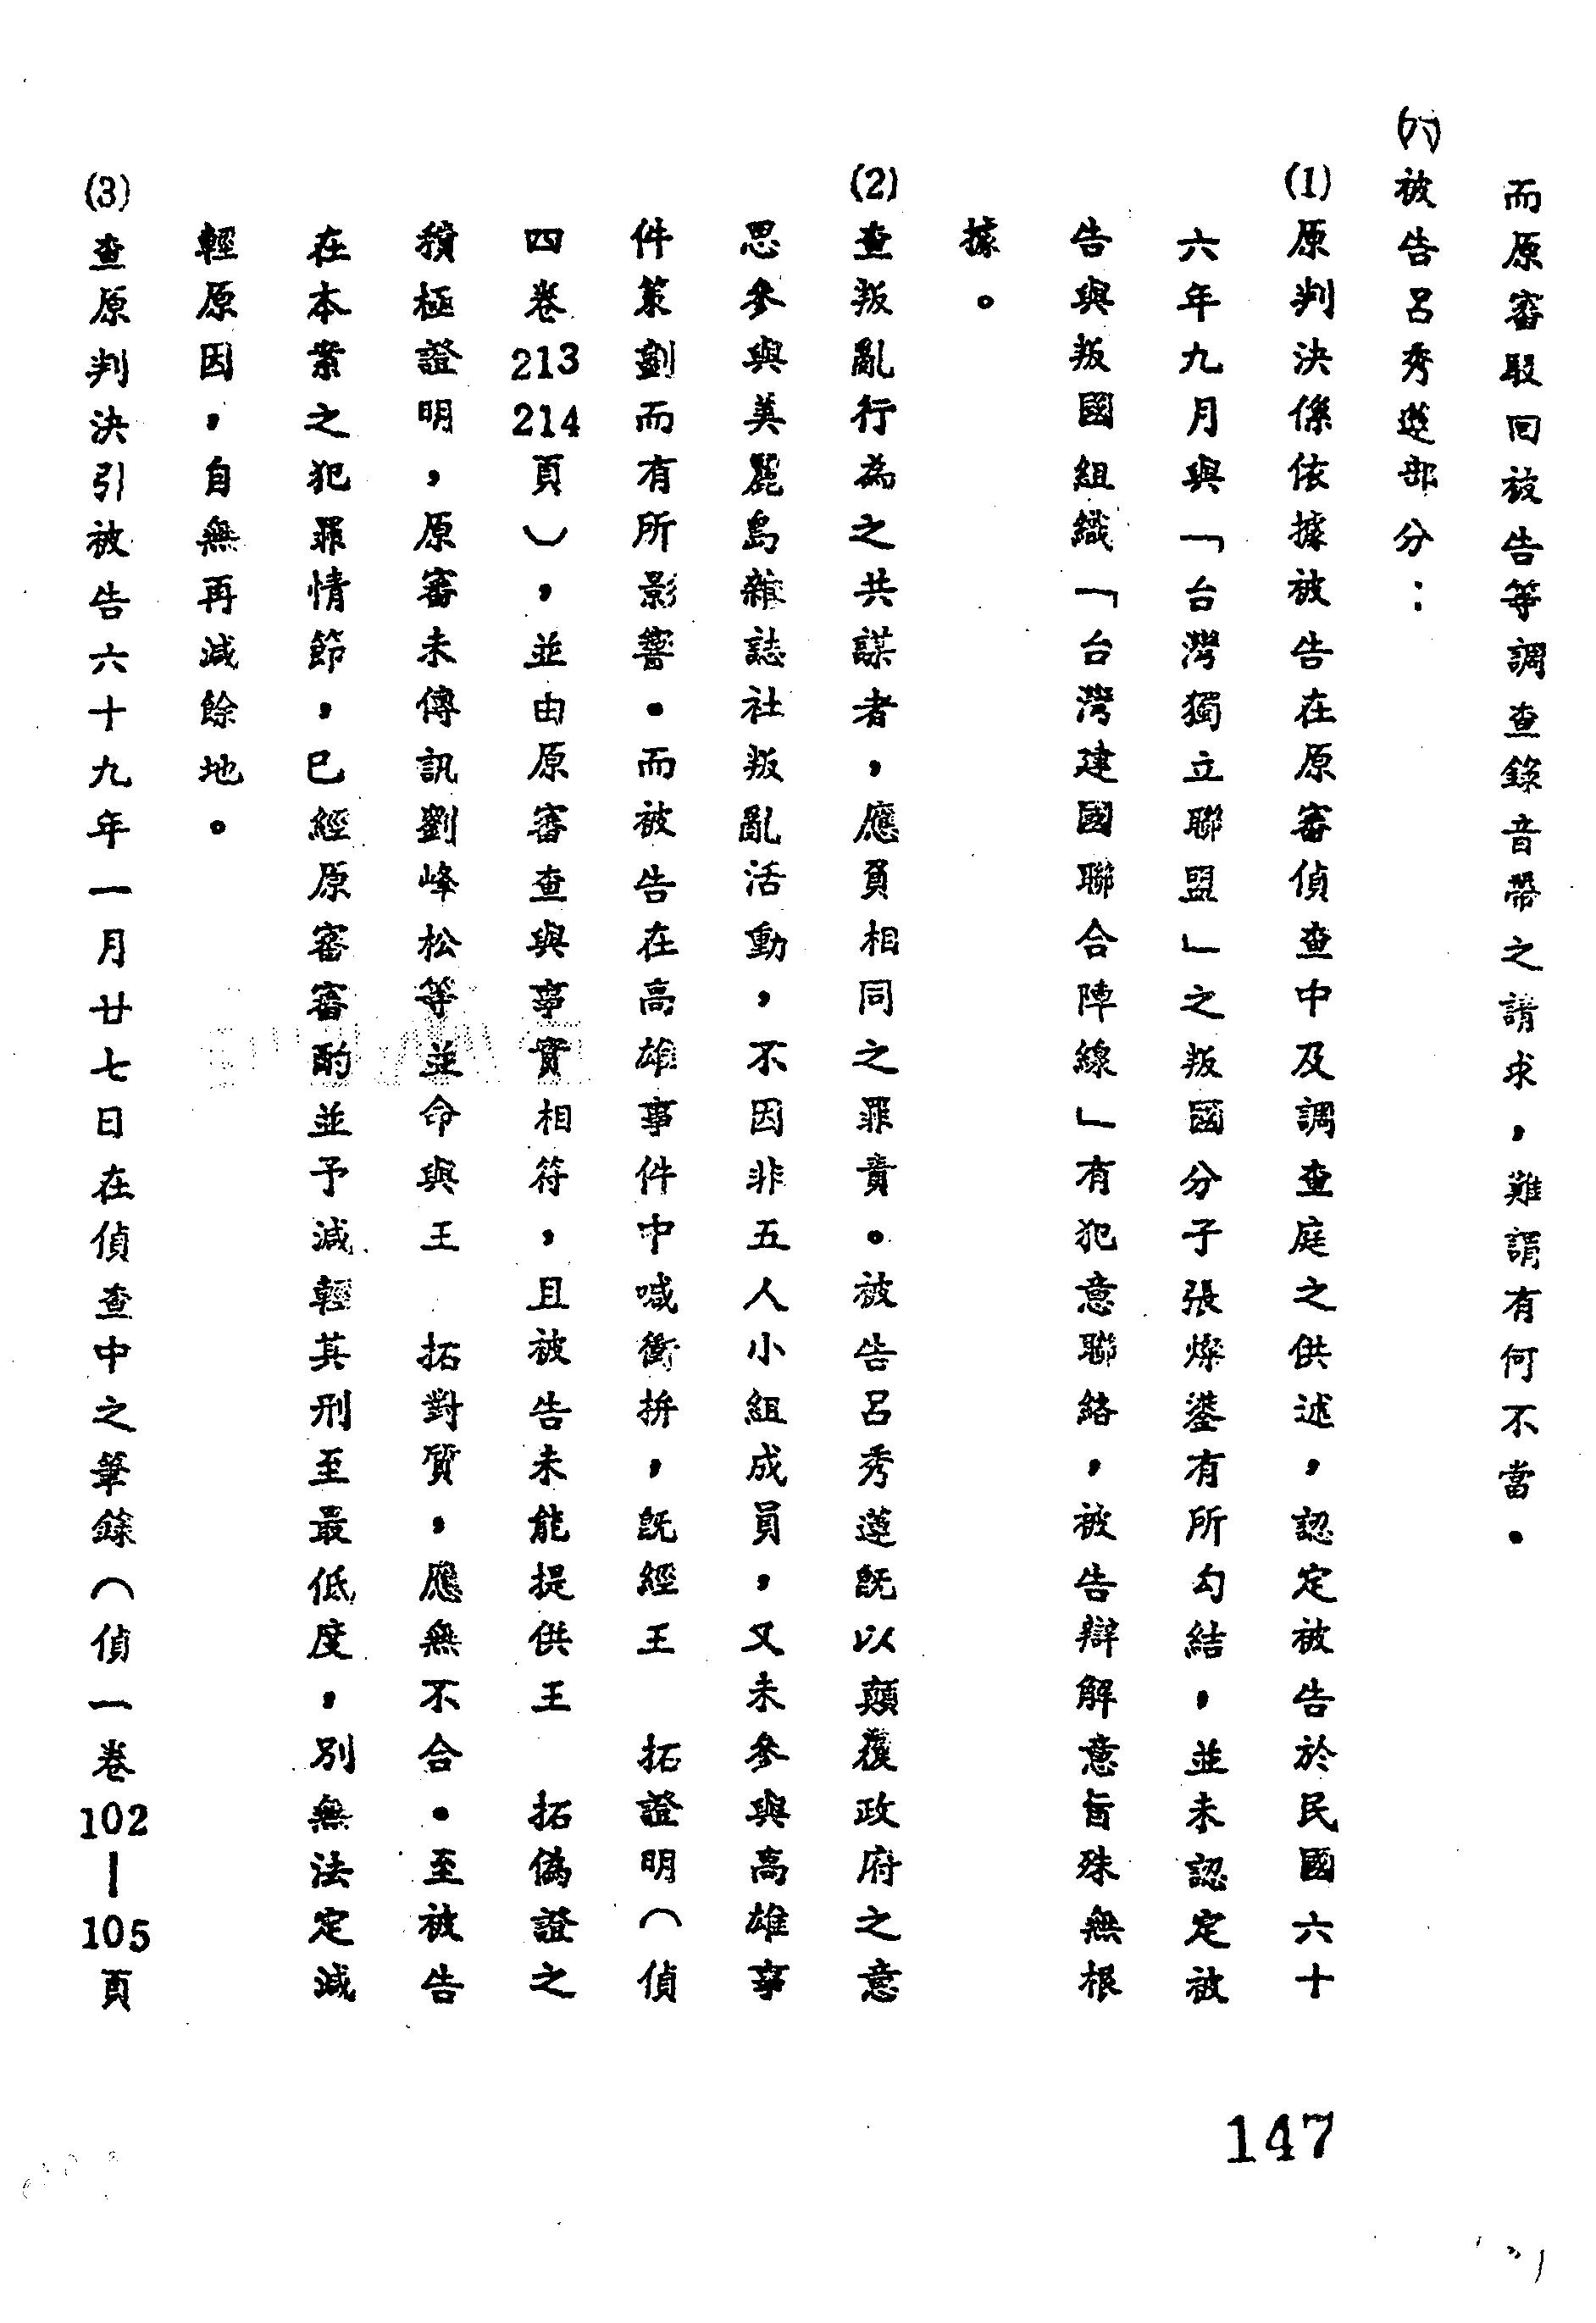 而原審駁回被告等調查錄音帶之請求，難謂有何不當。
㈥被告呂秀蓮部分：
(1)原判決係依據被告在原審偵查中及調查庭之供述，認定被告於民國六十
六年九月與「台灣獨立聯盟」之叛國分子張燦鍙有所勾結，並未認定被
告與叛國組織「台灣建國聯合陣線」有犯意聯絡，被告辯解意旨殊無根
據。
(2)查叛亂行為之共謀者，應負相同之罪責。被告呂秀蓮既以顛覆政府之意
思參與美麗島雜誌社叛亂活動，不因非五人小組成員，又未參與高雄事
件策劃而有所影響。而被告在高雄事件中喊衝拚，既經王　拓證明（偵
四卷213 214頁），並由原審查與事實相符，且被告未能提供王　拓偽證之
積極證明，原審未傳訊劉峰松等並命與王　拓對質，應無不合。至被告
在本案之犯罪情節，已經原審審酌並予減輕其刑至最低度，別無法定減
輕原因，自無再減餘地。
(3)查原判決引被告六十九年一月廿七日在偵查中之筆錄（偵一卷102—105頁
147